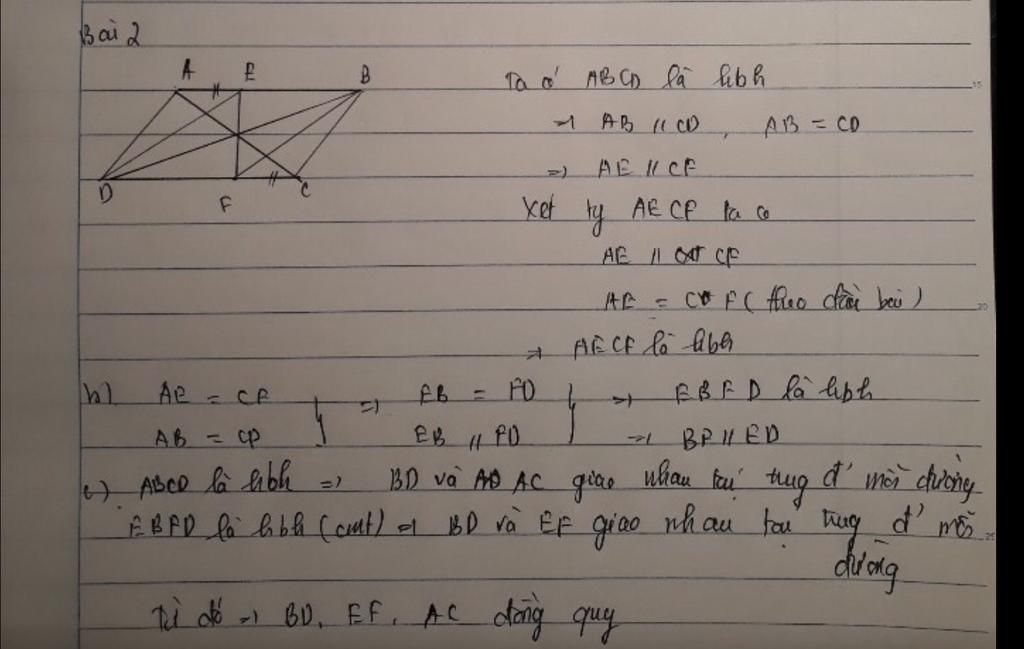 Bài 2
A E B
D F C
Ta có ABCD là hbh
→ AB // CD , AB = CD
=> AE // CF
Xét tg AECF ta có
AE // CF
AE = CF ( theo đầu bài )
→ AECF là hbh
b) AE = CF => EB = FD => EBFD là hbh
AB = CD EB // FD => BF // ED
c) ABCD là hbh => BD và AC giao nhau tại trung đ' mỗi đường
EBFD là hbh (cmt) => BD và EF giao nhau tại trung đ' mỗi
đường
Từ đó => BD, EF, AC đồng quy